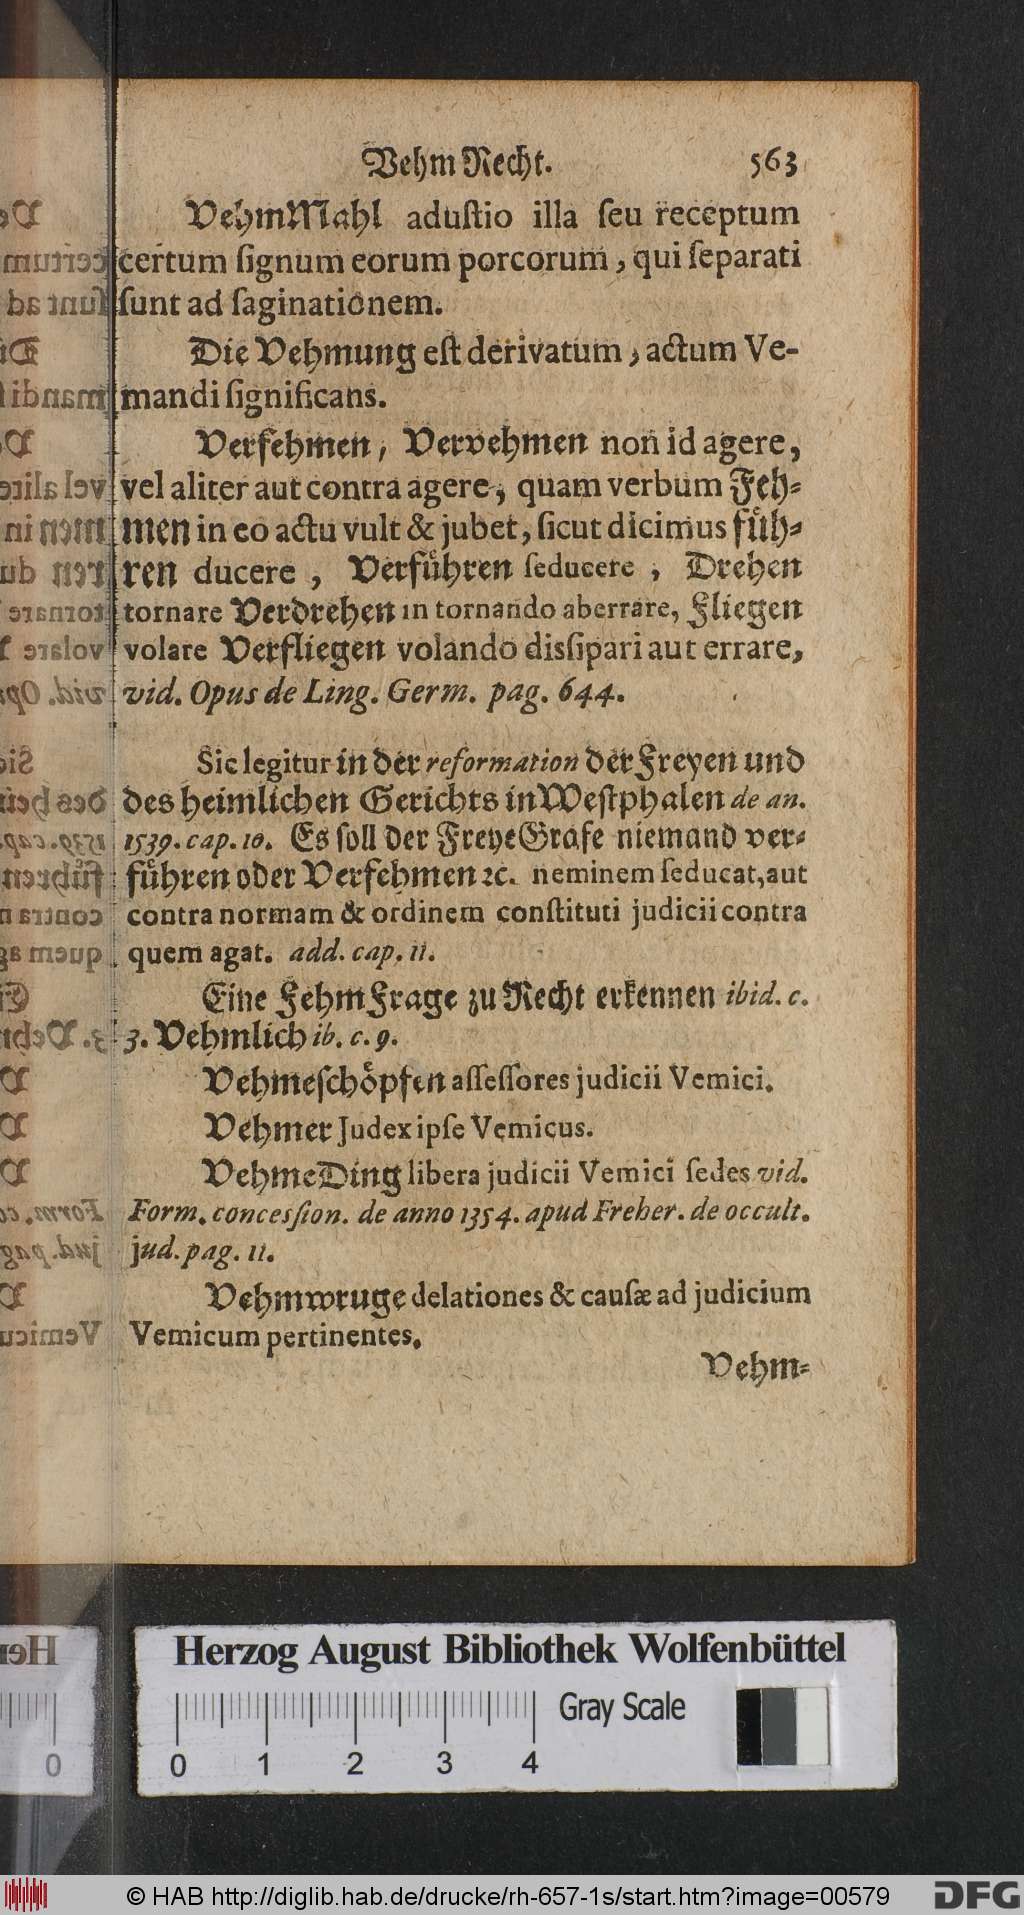 Vehm Recht. 563
VehmMahl aduſtio illa ſeu receptum
certum ſignum eorum porcorum, qui ſeparati
ſunt ad ſaginationem.
Die Vehmung eſt derivatum, actum Ve-
mandi ſignificans.
Verfehmen, Vervehmen non id agere,
vel aliter aut contra agere, quam verbum Feh-
men in eo actu vult & jubet, ſicut dicimus fuͤh-
ren ducere, Verfuͤhren seducere, Drehen
tornare Verdrehen in tornando aberrare, Fliegen
volare Verfliegen volando dissipari aut errare,
vid. Opus de Ling. Germ. pag. 644.
Sic legitur in der reformation der Freyen und
des heimlichen Gerichts in Weſtphalen de an.
1539. cap. 10. Es ſoll der FreyeGrafe niemand ver-
fuͤhren oder Verfehmen ꝛc. neminem ſeducat, aut
contra normam & ordinem conſtituti judicii contra
quem agat. add. cap. 11.
Eine FehmFrage zu Recht erkennen ibid. c.
3. Vehmlich ib. c. 9.
Vehmeſchoͤpfen aſſeſſores judicii Vemici.
Vehmer Judex ipſe Vemicus.
VehmeDing libera judicii Vemici ſedes vid.
Form. conceſſion. de anno 1354. apud Freher. de occult.
jud. pag. 11.
Vehmwruge delationes & cauſæ ad judicium
Vemicum pertinentes.
Vehm-
Herzog August Bibliothek Wolfenbüttel
Gray Scale
0 1 2 3 4
© HAB http://diglib.hab.de/drucke/rh-657-1s/start.htm?image=00579
DFG